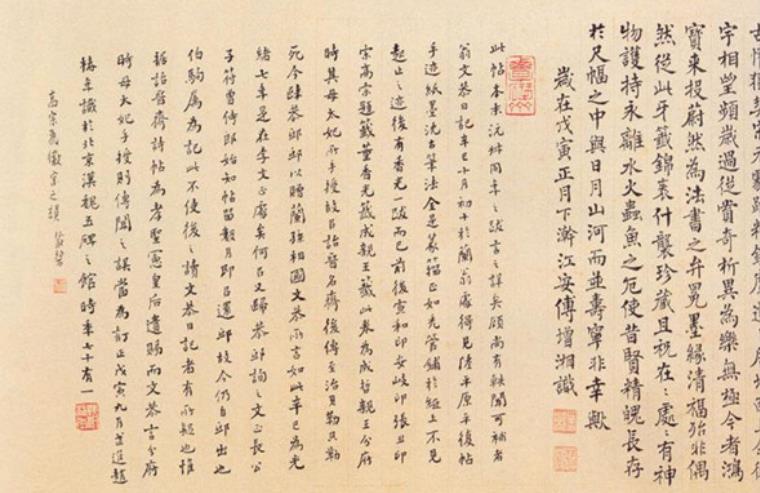 宇相望頻歲過從賞奇析異為樂無極今者鴻
寶來投蔚然為法書之弁冕墨緣清福殆非偶
然從此牙籤錦裹什襲珍藏且祝在﹕處﹕有神
物護持永離水火蟲魚之厄使昔賢精魄長存
於尺幅之中與日月山河而並壽寧非幸歟
歲在戊寅正月下澣江安傅增湘識
此帖本末沅叔同年之跋言之詳矣顧尚有軼聞可補者
翁文恭日記辛巳十月初十於蘭翁處得見陸平原平復帖
手迹紙墨沈古筆法全是篆籀正如禿管鋪於紙上不見
起止之迹後有香光一跋而已前後宣和印安岐印張丑印
宋高宗題籤董香光籤成親王籤此卷為成哲親王分府
時其母太妃所手授故以詒晉名齋後傳至治貝勒貝勒
死今歸恭邸邸以贈蘭孫相國文恭所言如此辛巳為光
緒七年是在李文正處矣何以又歸恭邸詢之文正長公
子符曾侍郎始知帖留數月即以還邸故今仍自邸出也
伯駒屬為記此不使後之讀文恭日記者有所疑也惟
據詒晉齋詩帖為孝聖憲皇后遺賜而文恭言分府
時母太妃手授則傳聞之誤當為訂正戊寅九月武進趙
椿年識於北京漢魏五碑之館時年七十有一
高宗為徽宗之誤